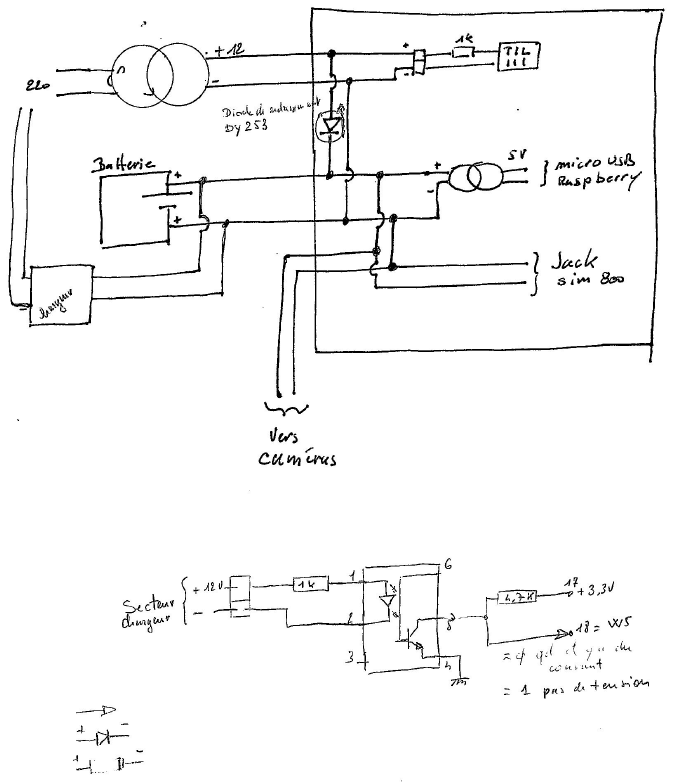 220
+ 12
-
+
-
1k
TIL
111
Diode de
BY 253
Batterie
+
+
+
-
5V
micro USB
Raspberry
chargeur
Jack
sim 800
Vers
caméras
Secteur
chargeur
+ 12V
-
1k
1
2
3
6
5
4
4,7K
17
+3,3V
18 = W5
= φ qd il y a du
courant
= 1 pas de tension
+
-
+
-